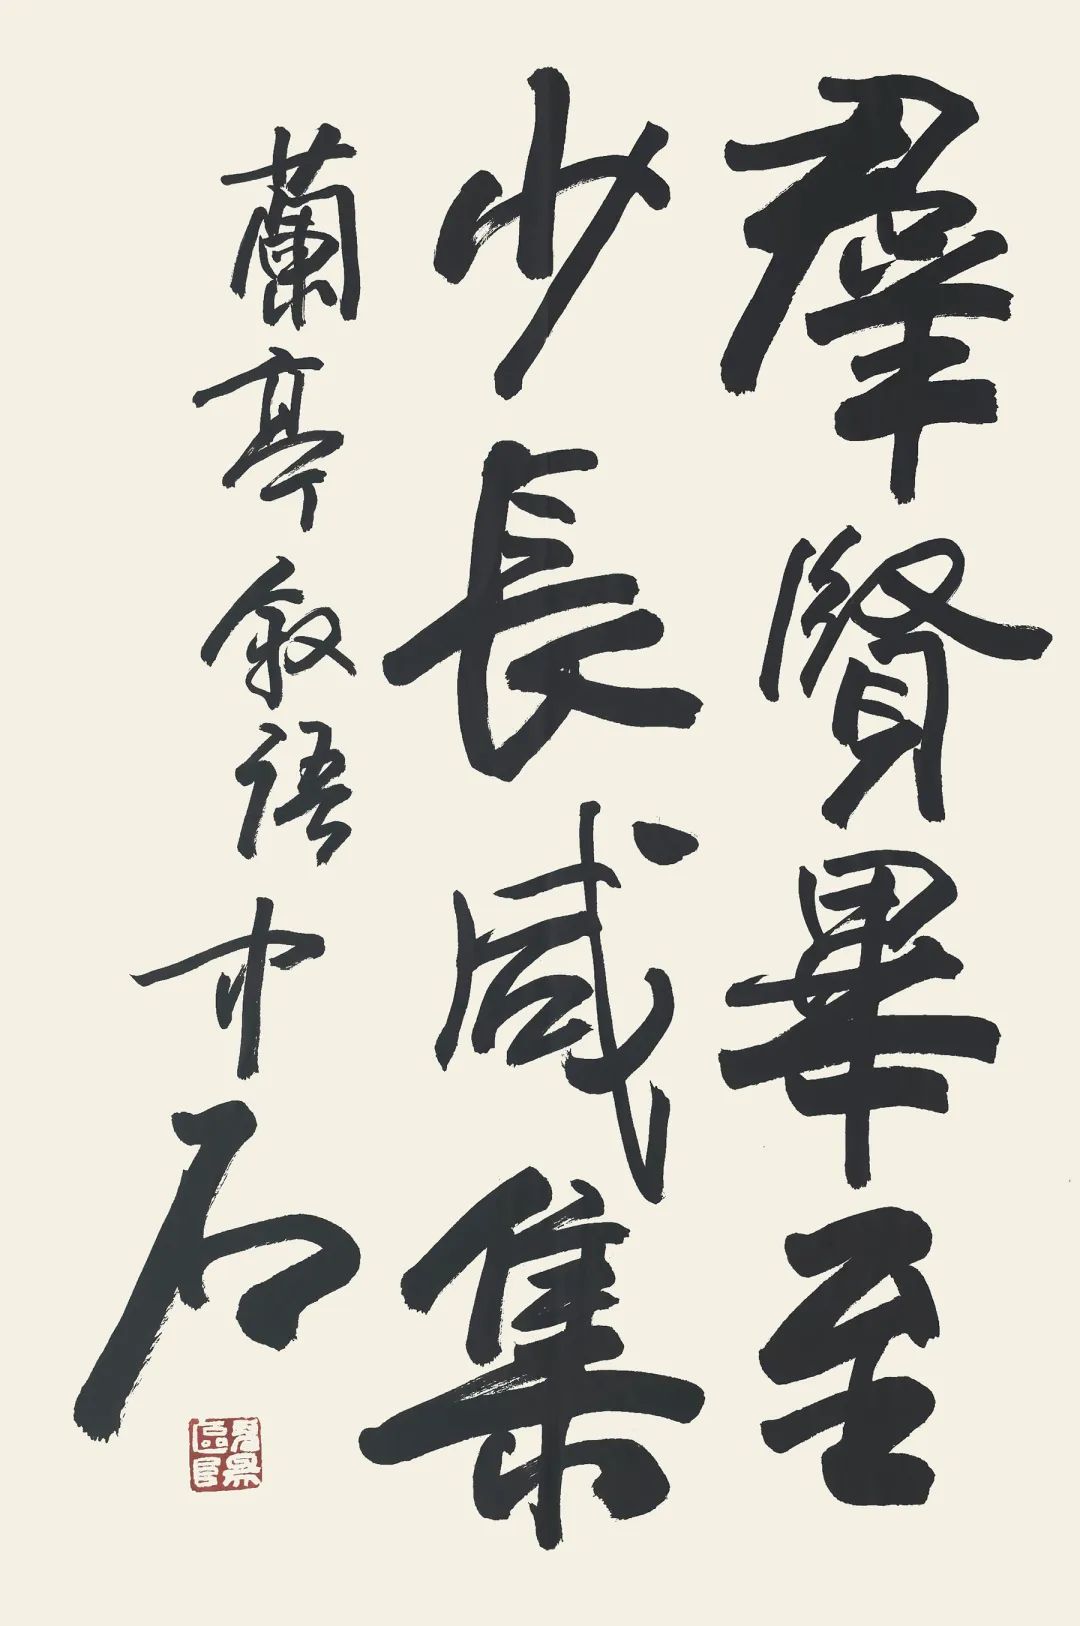 羣賢畢至
少長咸集
蘭亭叙語 中石